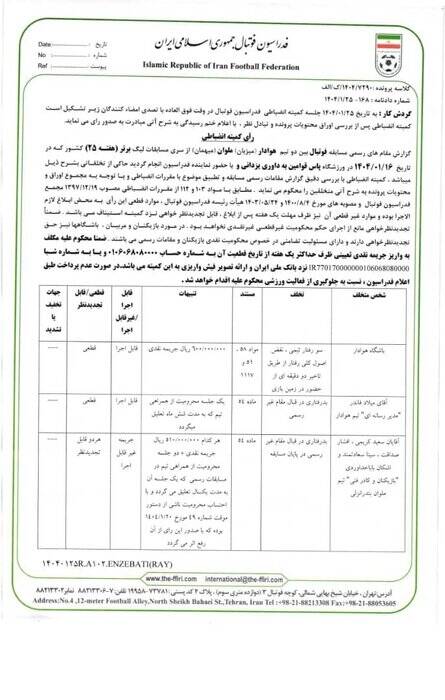 فدراسیون فوتبال جمهوری اسلامی ایران
Islamic Republic of Iran Football Federation
تاریخ Date
شماره No
پیوست Ref
کلاسه پرونده: ۱۴۰۴/۷۲۹۰/ک/الف
شماره دادنامه: ۱۶۸-۱۴۰۴/۱/۲۵
گردش کار: به تاریخ ۱۴۰۴/۰۱/۲۵ جلسه کمیته انضباطی فدراسیون فوتبال در وقت فوق العاده با تصدی امضاء کنندگان زیر تشکیل است
کمیته انضباطی پس از بررسی اوراق محتویات پرونده و تبادل نظر، با اعلام ختم رسیدگی به شرح آتی مبادرت به صدور رای می نماید.
رأی کمیته انضباطی
گزارش مقام های رسمی مسابقه فوتبال بین دو تیم هوادار (میزبان) ملوان (میهمان) از سری مسابقات لیگ برتر (هفته ۲۵) کشور که در
تاریخ ۱۴۰۴/۰۱/۱۶ در ورزشگاه پاس قوامین به داوری یزدانی و با حضور نماینده فدراسیون انجام گردید حاکی از تخلفاتی بشرح ذیل
میباشد. کمیته انضباطی با بررسی دقیق گزارش مقامات رسمی مسابقه و تطبیق موضوع با مقررات انضباطی و با توجه به مجموع اوراق و
محتویات پرونده به شرح آتی متخلفین را محکوم می نماید. مطابق با مواد ۱۰۳ و ۱۱۲ از مقررات انضباطی مصوب ۱۳۹۷/۱۲/۱۹
فدراسیون فوتبال و مصوبه های مورخ ۱۴۰۰/۸/۴ و ۱۴۰۳/۵/۲۴ هیأت رئیسه فدراسیون فوتبال، موارد قطعی این رأی به محض ابلاغ لازم
الاجرا بوده و موارد غیر قطعی آن نیز ظرف مهلت یک هفته پس از ابلاغ، قابل تجدیدنظر خواهی نزد کمیته استیناف می باشد. ضمناً
تجدیدنظرخواهی مانع از اجرای حکم محرومیت غیرقطعی نخواهد بود. در مورد بازیکنان و مربیان، باشگاهها نیز حق
تجدیدنظرخواهی دارند و دارای مسئولیت تضامنی در خصوص محرومیت نقدی بازیکنان و مقامات رسمی می باشند. ضمناً محکوم علیه مکلف
به واریز جریمه نقدی تعیینی ظرف حداکثر یک هفته از تاریخ قطعیت آن به شماره حساب ۰۱۰۶۰۶۸۰۸۰۰۰۰ و یا به شماره شبا
IR770170000000106068080000 نزد بانک ملی ایران و ارائه تصویر فیش واریزی به این کمیته می باشد. در صورت عدم پرداخت طبق
اعلام فدراسیون، نسبت به جلوگیری از فعالیت ورزشی محکوم علیه اقدام خواهد شد.
شخص متخلف تخلف مستند تنبیهات قابل اجرا /غیرقابل اجرا قطعی/قابل تجدیدنظر جهات تخفیف یا تشدید
باشگاه هوادار سو رفتار تیمی، نقض اصول کلی رفتار از طریق تاخیر دو دقیقه ای از حضور در زمین بازی مواد ۵۸، ۵۱ و ۱۱۱۷ ۶۰۰/۰۰۰/۰۰۰ ریال جریمه نقدی قابل اجرا قطعی ----
آقای میلاد قائدر "مدیر رسانه ای" تیم هوادار بدرفتاری در قبال مقام غیر رسمی ماده ۵۴ یک جلسه محرومیت از همراهی تیم که به مدت شش ماه تعلیق میگردد قابل اجرا قطعی ----
آقایان سعید کریمی، افشار صداقت، سینا سعادتمند و اشکان باباعدادوری "بازیکنان و کادر فنی" تیم ملوان بندرانزلی بدرفتاری در قبال مقام غیر رسمی در پایان مسابقه ماده ۵۴ هر کدام ۵۱۰/۰۰۰/۰۰۰ ریال جریمه نقدی + دو جلسه محرومیت از همراهی تیم در مسابقات رسمی که یک جلسه آن به مدت یکسال تعلیق می گردد و با احتساب محرومیت ناشی از دستور موقت شماره ۴۹ مورخ ۱۴۰۴/۱/۲۰ بوده که با صدور این رای از آن رفع اثر می گردد جریمه غیر قابل اجرا هردو قابل تجدیدنظر ----
۱۴۰۴۰۱۲۵R.A۱۰۲.ENZEBATI(RAY)
www.the-ffiri.com international@the-ffiri.com
آدرس:تهران، خیابان شیخ بهایی شمالی، کوچه فوتبال ۳ (دوازده متری سوم)، پلاک ۴ کد پستی: ۷۳۷۸۱-۱۹۹۵۸ تلفن:۷-۸۸۲۱۳۳۰۶ نمابر:۸۸۲۱۳۳۰۲
Address:No.4 ,12-meter Football Alley,North Sheikh Bahaei St.,Tehran, Iran Tel :+98-21-88213308 Fax:+98-21-88053605